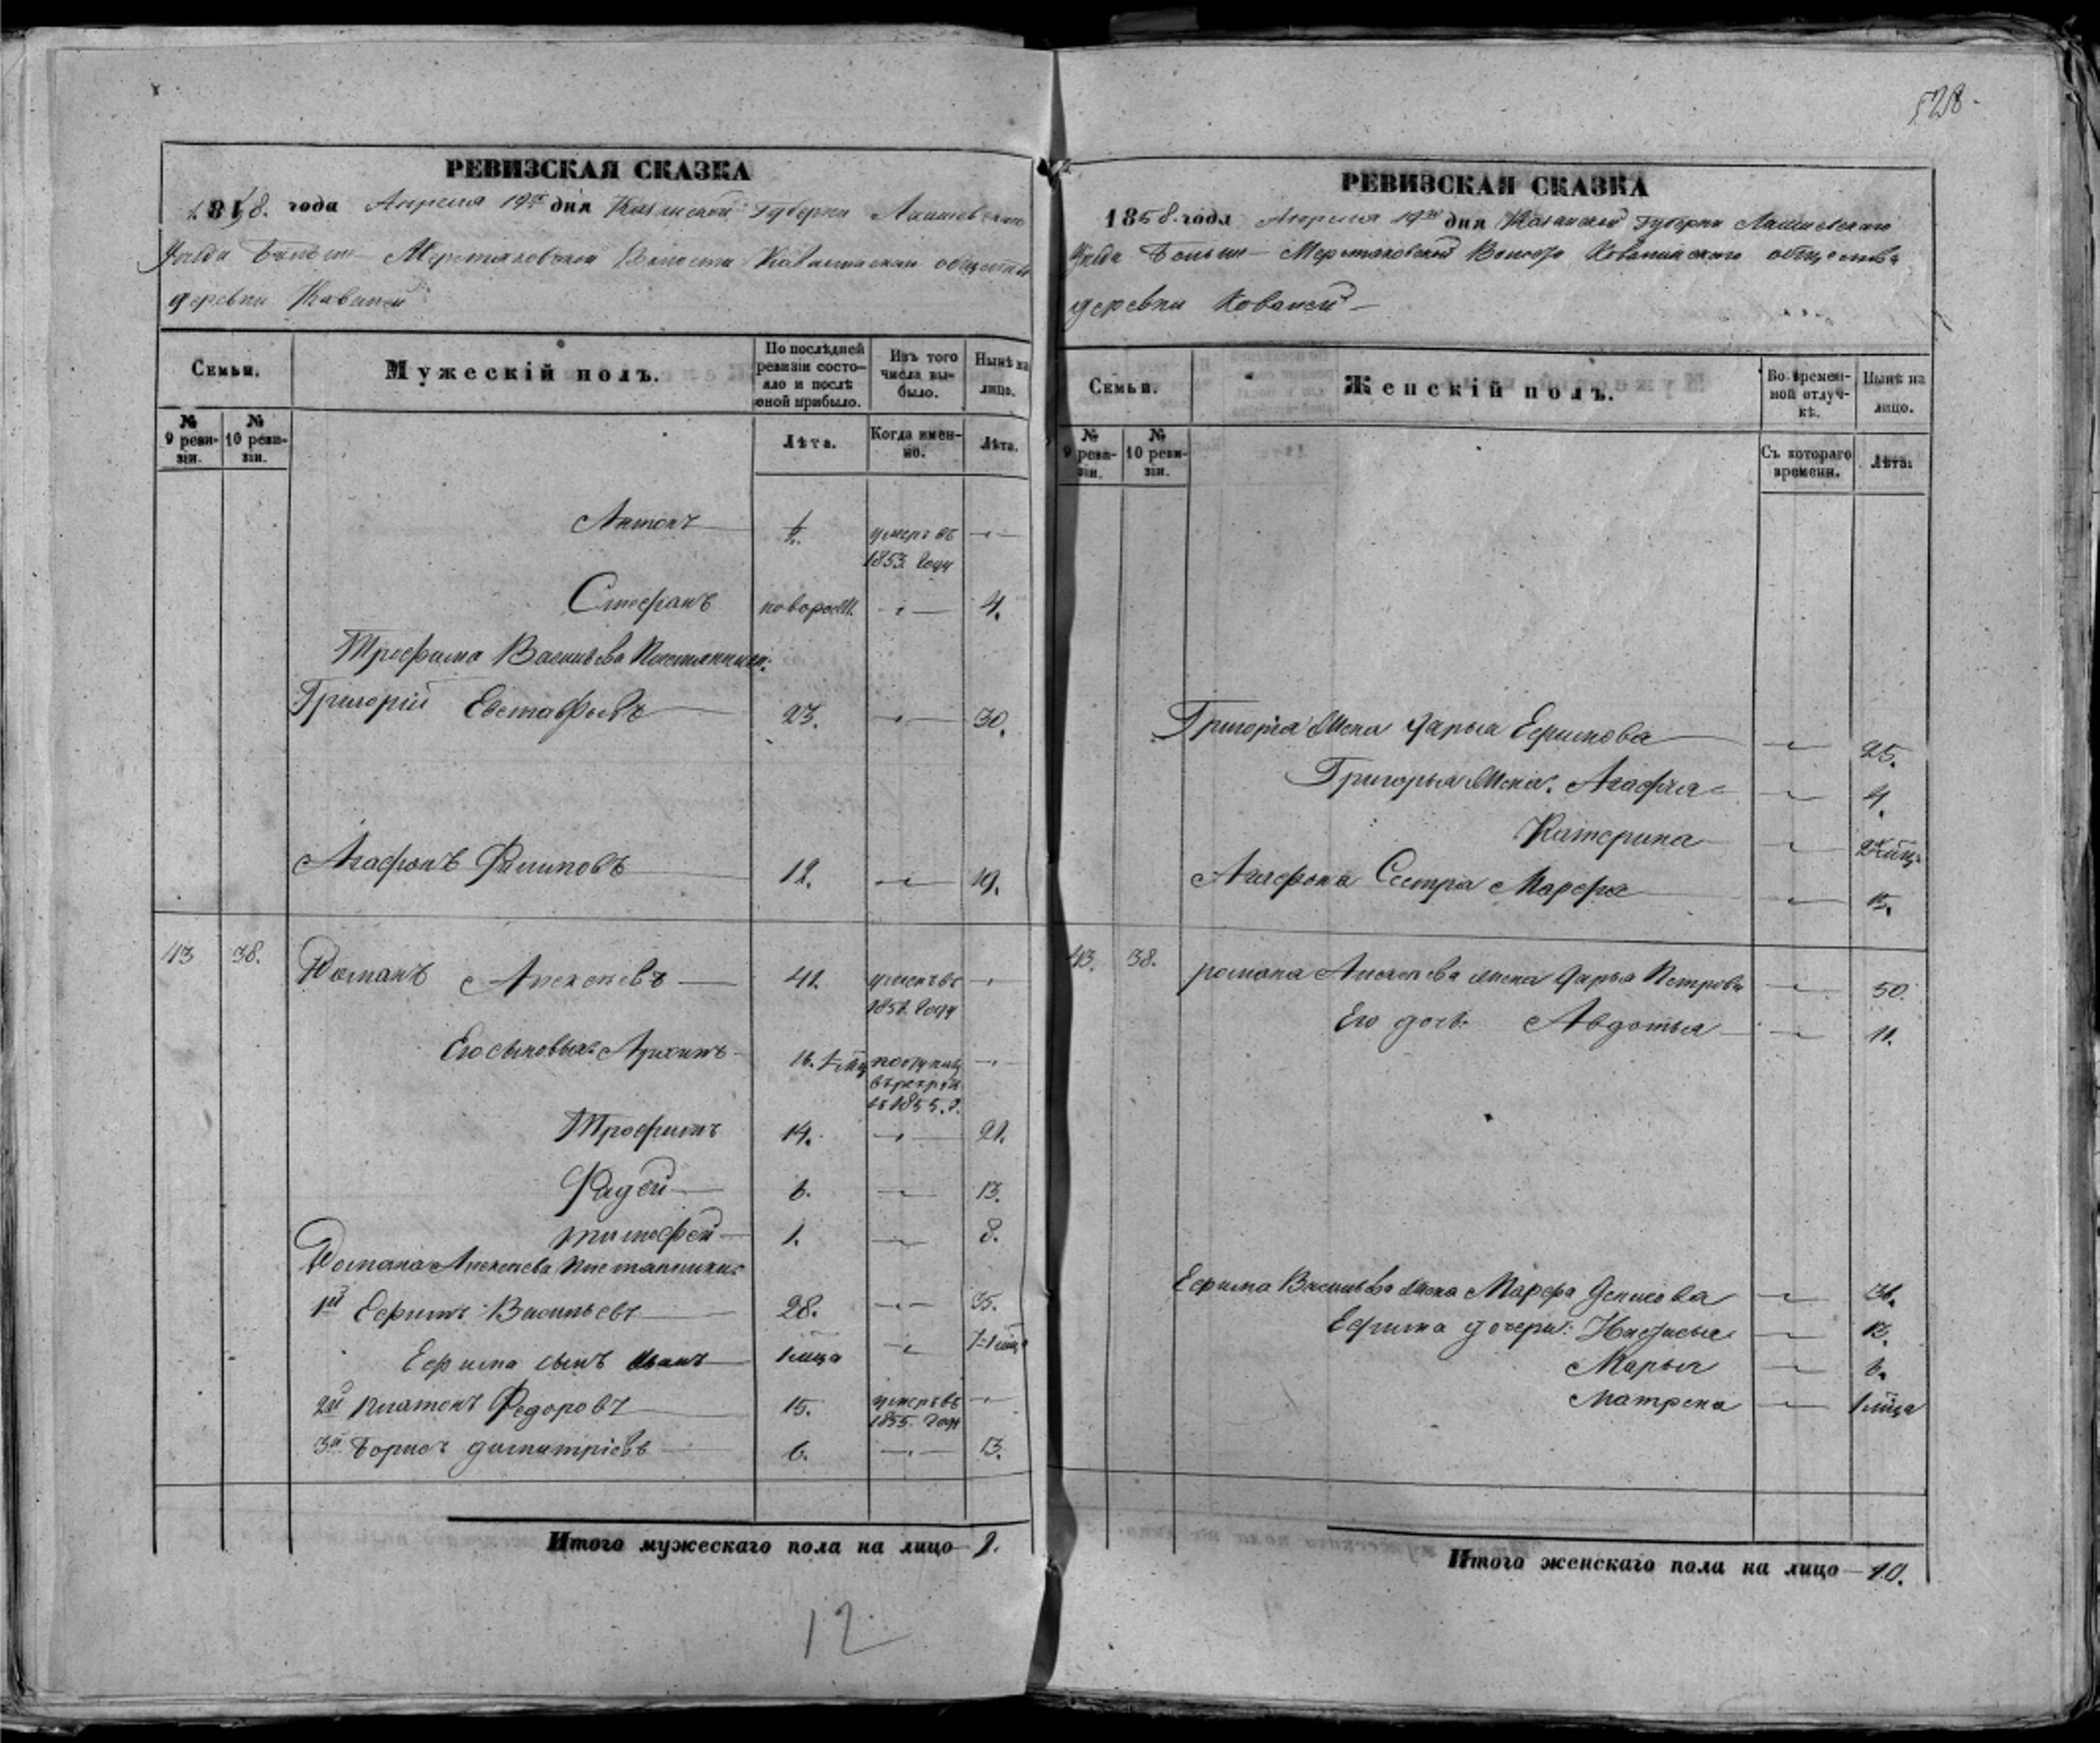 528.
РЕВИЗСКАЯ СКАЗКА
1858. года Апреля 19го дня Казанской Губерни Лаишевскаго
Уезда Больше Мереттяковской Волости Ковалинскаго общества
деревни Ковалей
Семьи.
Мужескій полъ.
По послѣдней ревизіи состояло и послѣ оной прибыло.
Изъ того числа выбыло.
Нынѣ на лицо.
№ 9 ревизіи.
№ 10 ревизіи.
Лѣта.
Когда именно.
Лѣта.
Антонъ умеръ въ 1853. году
Стефанъ новорож. 4.
Трефима Васильева Племянники:
Григорій Евстафьевъ 23. 30.
Агафонъ Филиповъ 12. 19.
43 38. Романъ Алексеевъ 41. умеръ въ году
Его сыновья: Архипъ 16. поступилъ в рекруты въ 1855. г.
Трофимъ 14. 21.
Фадей 6. 13.
тимофей 1. 8.
Романа Алексеева племянники:
1й Ефимъ Васильевъ 28. 35.
Ефима сынъ Иванъ 1 мца
2й платонъ Федоровъ 15. умеръ въ 1855. году
3й Борисъ димитріевъ 6. 13.
Итого мужескаго пола на лицо
12
РЕВИЗСКАЯ СКАЗКА
1858 года Апреля 19го дня Казанской Губерни Лаишевскаго
Уезда Больше Мереттяковской Волости Ковалинскаго общества
деревни Ковалей
Семьи.
Женскій полъ.
Во временной отлучкѣ.
Нынѣ на лицо.
№ 9 ревизіи.
№ 10 ревизіи.
Съ котораго времени.
Лѣта.
Григорія жена Дарья Ефимова 25.
Григорья Агафья 4.
Катерина
Агафона Сестра Марфа 15.
43. 38. романа Алексеева жена Дарья Петрова 50.
Его дочь Авдотья 11.
Ефима Васильева жена Марфа Денисова
Ефима дочери: Настасья
Марья 6.
Матрена 1 мца
Итого женскаго пола на лицо 10.